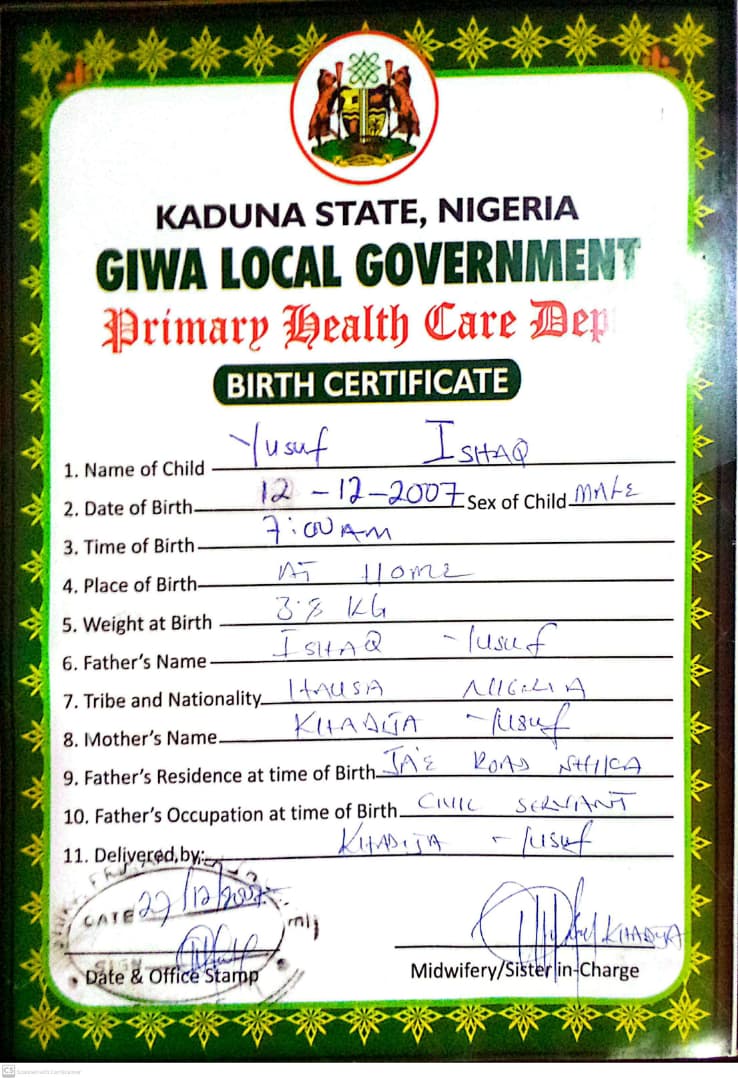 KADUNA STATE, NIGERIA
GIWA LOCAL GOVERNMENT
Primary Health Care Dep
BIRTH CERTIFICATE
1. Name of Child Yusuf ISHAQ
2. Date of Birth 12-12-2007 Sex of Child MALE
3. Time of Birth 7:00 AM
4. Place of Birth AT HOME
5. Weight at Birth 3.8 KG
6. Father's Name ISHAQ Yusuf
7. Tribe and Nationality HAUSA NIGERIA
8. Mother's Name KHADIJA Yusuf
9. Father's Residence at time of Birth ROAD SHIKA
10. Father's Occupation at time of Birth CIVIL SERVANT
11. Delivered by: KHADIJA Yusuf
DATE 27/12/2007
SIGN
KHADIJA
Date & Office Stamp Midwifery/Sister in-Charge
CS Scanned with CamScanner